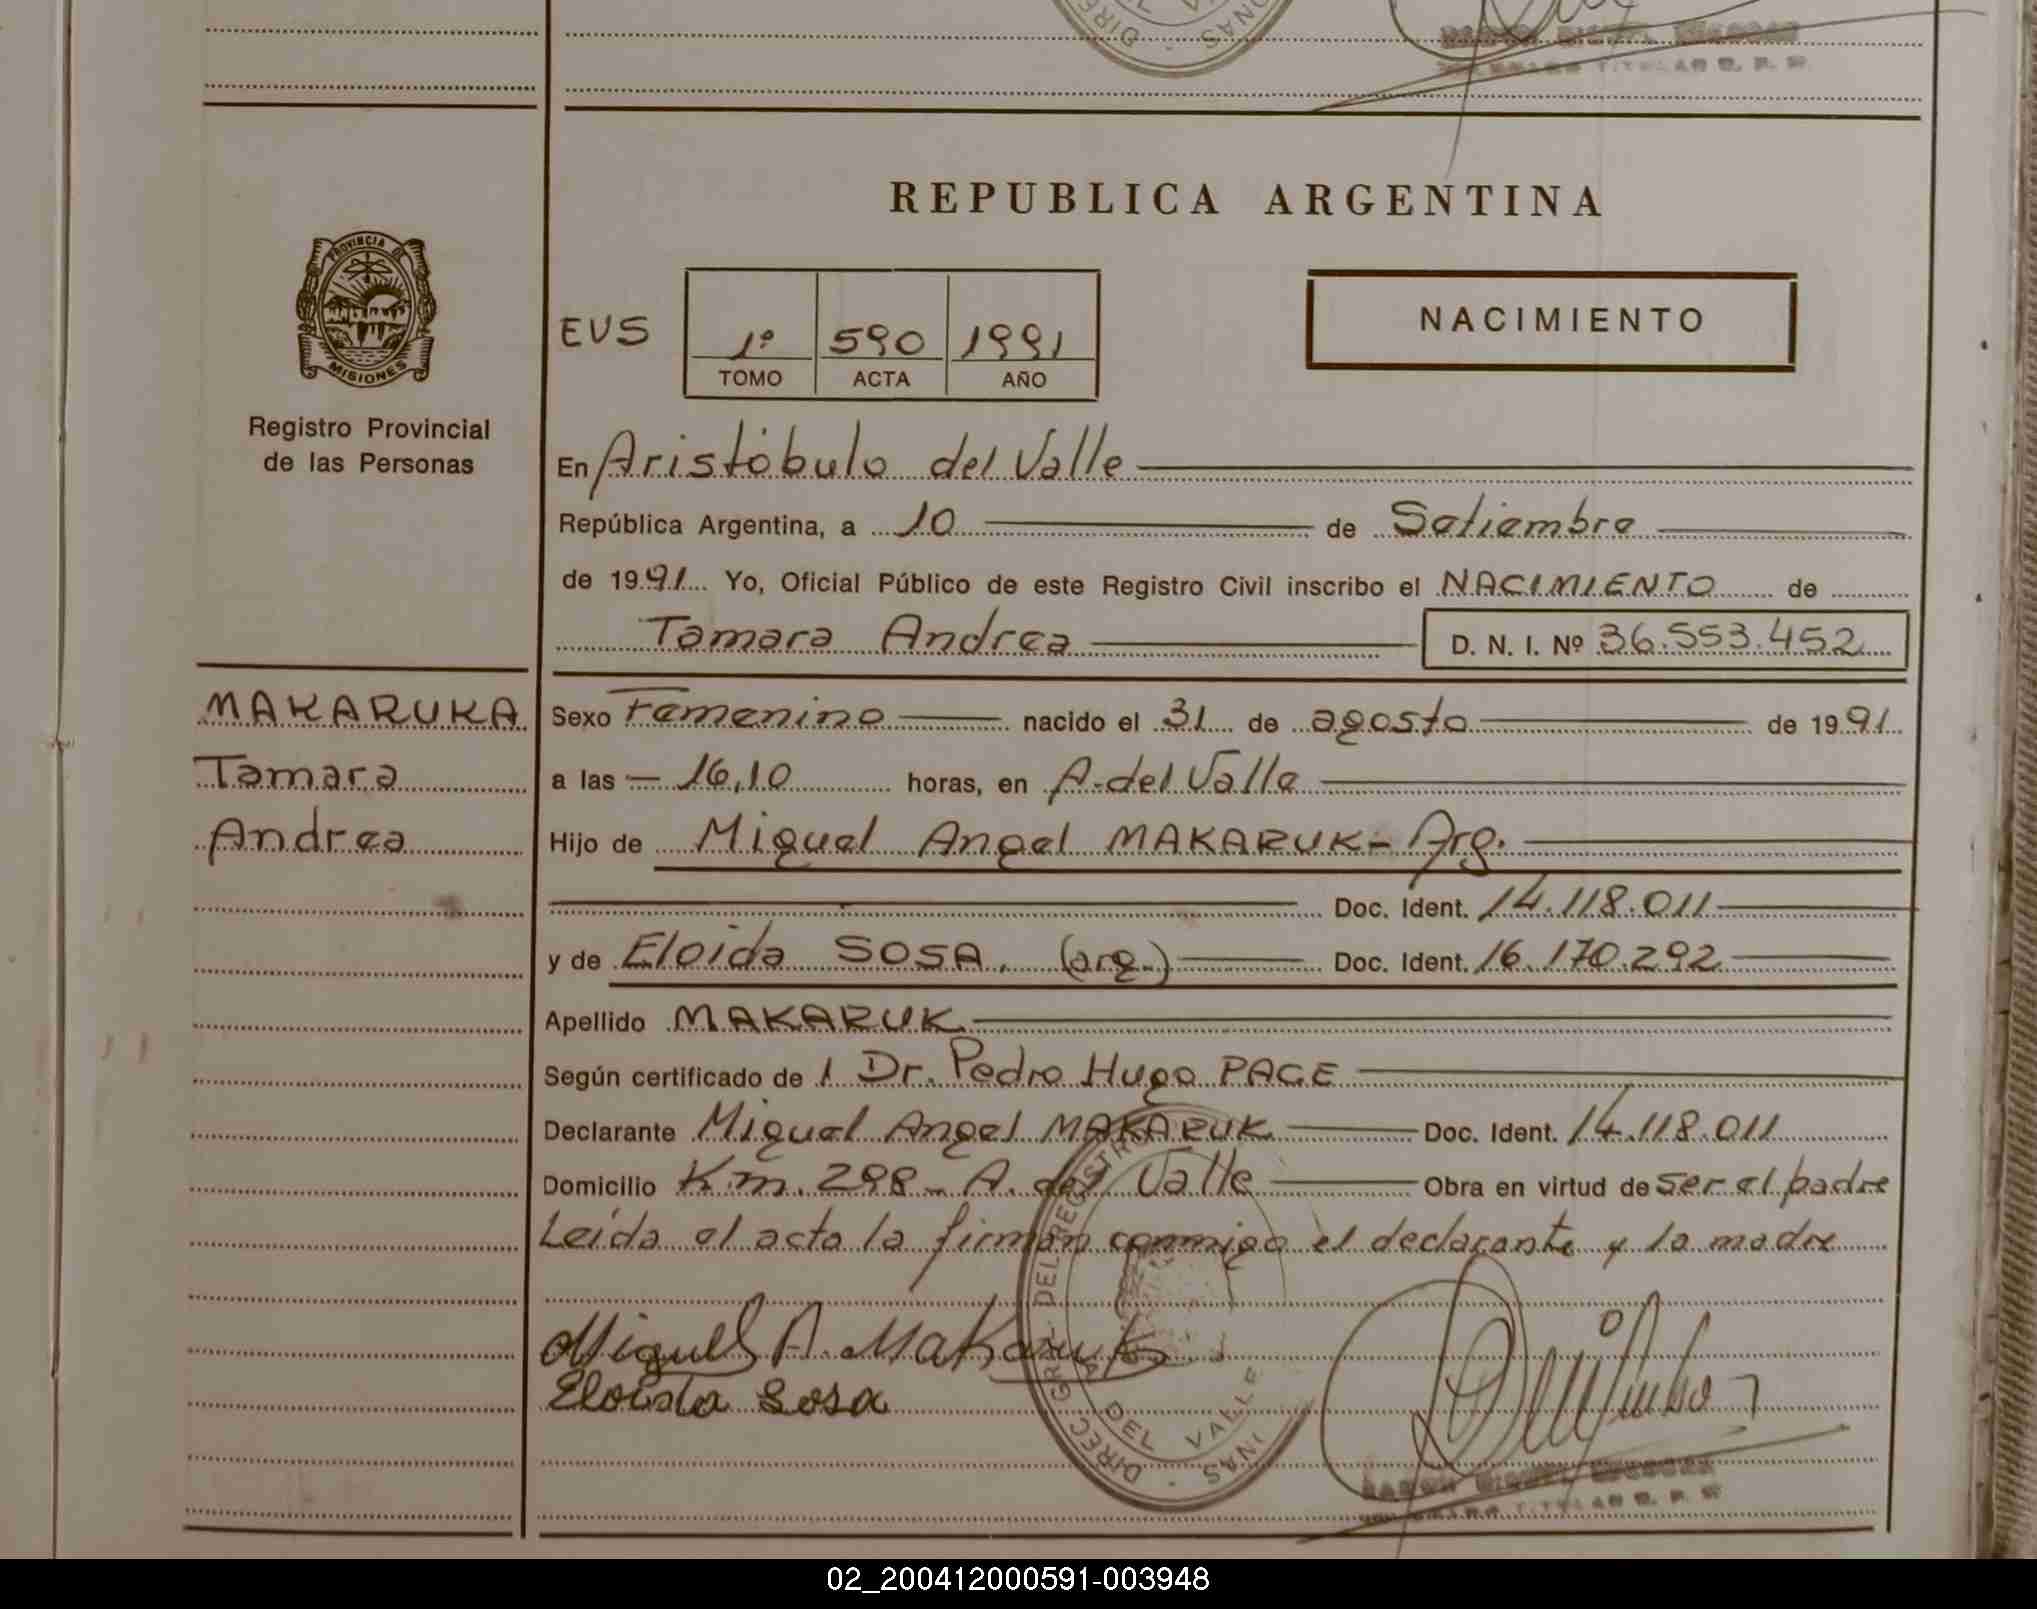 REPUBLICA ARGENTINA
PROVINCIA DE
MISIONES
Registro Provincial
de las Personas
EVS
1º 590 1991
TOMO ACTA AÑO
NACIMIENTO
En Aristóbulo del Valle
República Argentina, a 10 de Setiembre
de 1991 Yo, Oficial Público de este Registro Civil inscribo el NACIMIENTO de
Tamara Andrea D. N. I. Nº 36.553.452
MAKARUKA
Tamara
Andrea
Sexo Femenino nacido el 31 de agosto de 1991
a las 16,10 horas, en A. del Valle
Hijo de Miguel Angel MAKARUK - Arg.
Doc. Ident. 14.118.011
y de Eloida SOSA. (arg.) Doc. Ident. 16.170.292
Apellido MAKARUK
Según certificado de 1 Dr. Pedro Hugo PAGE
Declarante Miguel Angel MAKARUK Doc. Ident. 14.118.011
Domicilio Km. 298 - A. del Valle Obra en virtud de ser el padre
Leída el acta la firman conmigo el declarante y la madre
Miguel A. Makaruk
Eloida Sosa
DEL VALLE
02_200412000591-003948